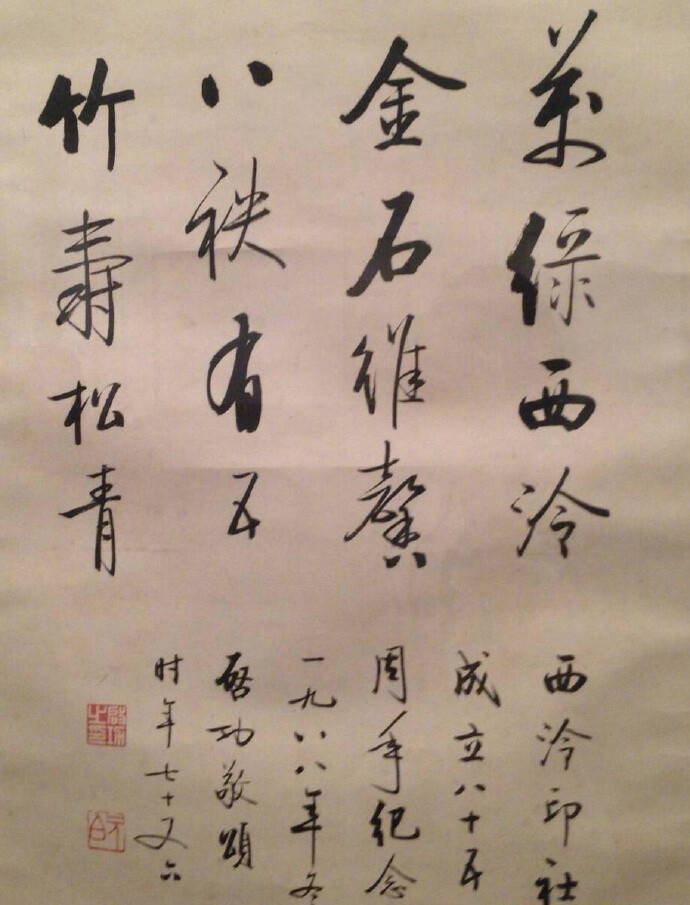 萬綠西泠
金石維馨
八秩有五
竹壽松青
西泠印社
成立八十五
周年纪念
一九八八年冬
啓功敬頌
时年七十又六
元白